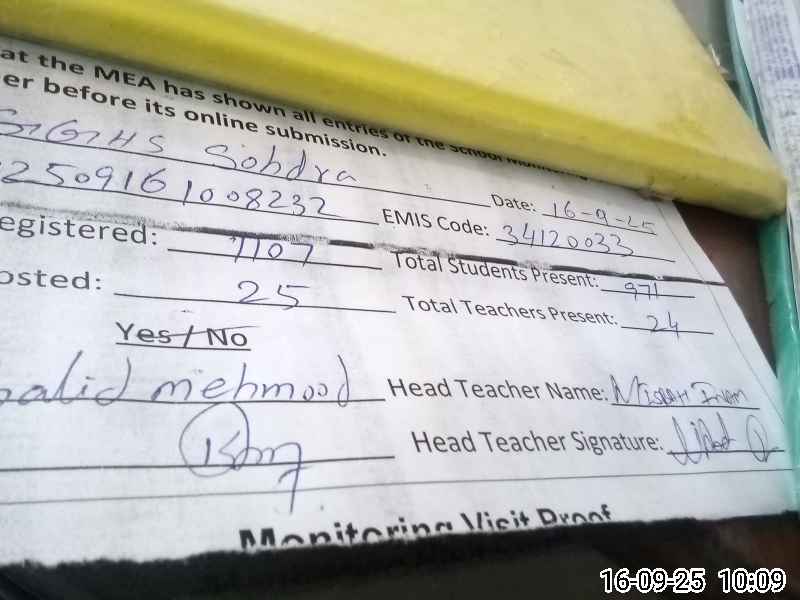 at the MEA has shown all entries of the School
er before its online submission.
GGHS Sohdra
Date: 16-9-25
2509161008232
EMIS Code: 34120033
egistered: 1107
Total Students Present: 971
osted: 25
Total Teachers Present: 24
Yes / No
alid mehmood
Head Teacher Name:
Head Teacher Signature:
Monitoring Visit Proof
16-09-25 10:09